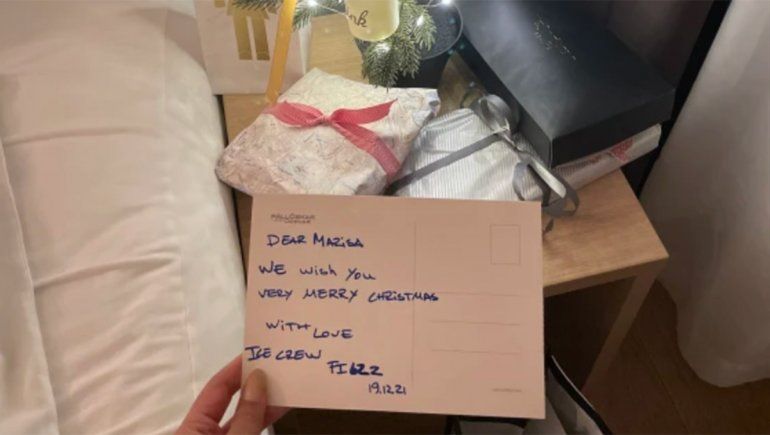 PÁLL ÓSKAR
DEAR MARISA
WE WISH YOU
VERY MERRY CHRISTMAS
WITH LOVE
ICE CREW FI622
19.12.21